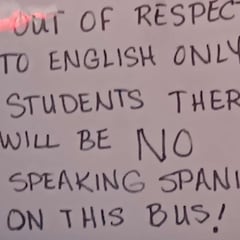 OUT OF RESPEC
TO ENGLISH ONLY
STUDENTS THER
WILL BE NO
SPEAKING SPANI
ON THIS BUS!